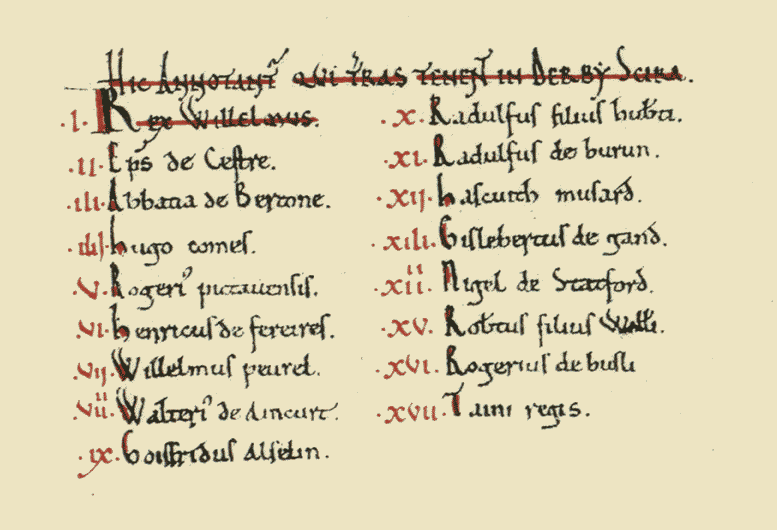 HIC ANNOTANT͛ QUI T͛RAS TENENT͛ IN DERBY SCIRA.
.I. REX Willelmus.
.II. Ep̄s de Cestre.
.III. Abbatia de Bertone.
.IIII. Hugo comes.
.V. Rogeri᷒ pictauensis.
.VI. Henricus de fereires.
.VII. Willelmus peurel.
.VIII. Walteri᷒ de Aincurt.
.IX. Goisfridus Alselin.
.X. Radulfus filius hub̄ti.
.XI. Radulfus de burun.
.XII. hascuith musard.
.XIII. Gislebertus de gand.
.XIIII. Nigel de Statford.
.XV. Rob̄tus filius Willi.
.XVI. Rogerius de busli
.XVII. Taini regis.